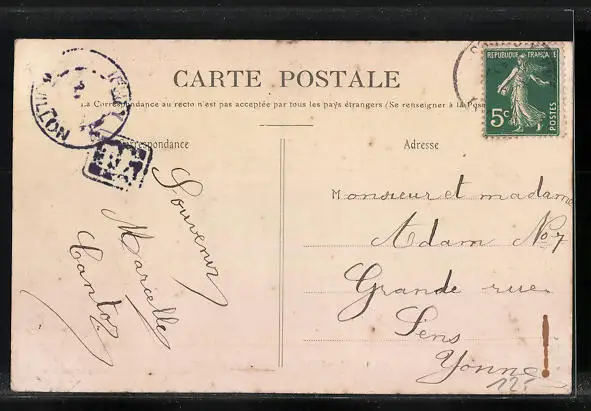 CARTE POSTALE
La Correspondance au recto n'est pas acceptée par tous les pays étrangers (Se renseigner à la Pos
Correspondance
Adresse
REPUBLIQUE FRANÇAISE
5c
POSTES
Souvenir
Marcelle
Monsieur et madame
Adam No 7
Grande rue
Sens
Yonne